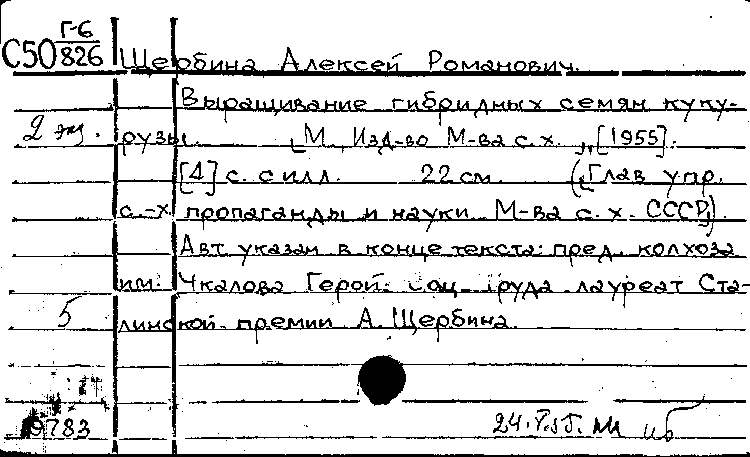 Г-6
С50 826 Щербина Алексей Романович.
Выращивание гибридных семян куку-
2 экз. рузы. [М., Изд-во М-ва с. х., [1955].
[4] с. с илл. 22 см. ([Глав упр.
с.-х. пропаганды и науки М-ва с. х. СССР])
Авт. указан в конце текста: пред. колхоза
им. Чкалова Герой Соц. Труда лауреат Ста-
5 линской премии А. Щербина.
9783 24.V.55.